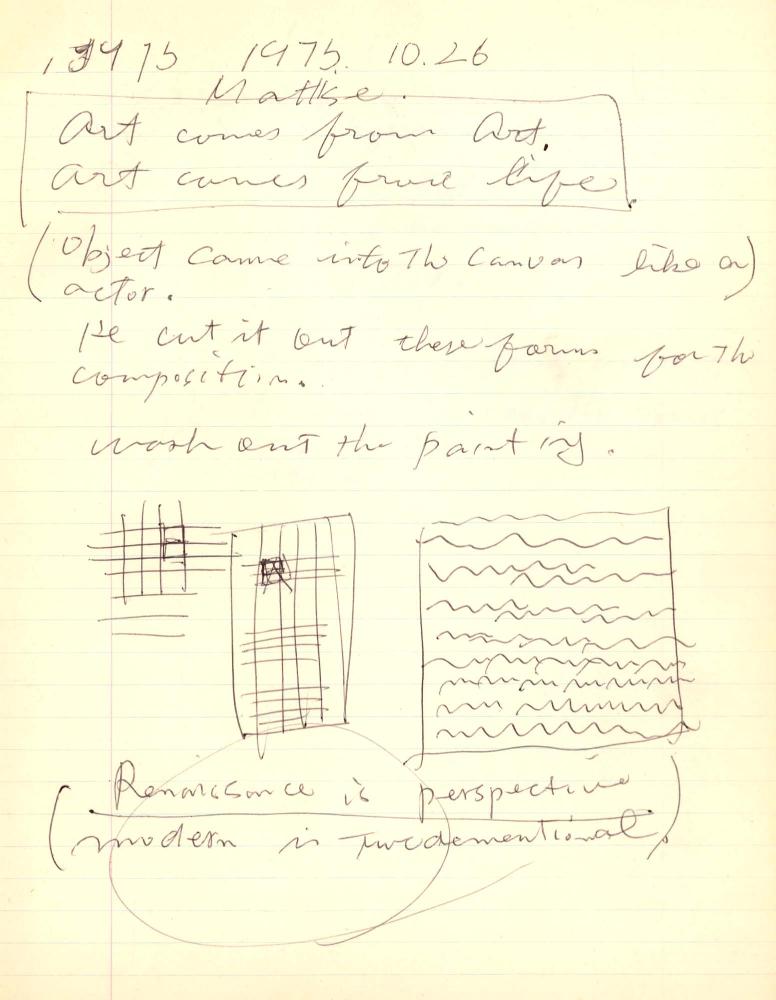 1975. 10.26
Matisse.
Art comes from Art.
Art comes from life
(Object came into The Canvas like an)
actor.
He cut it out these forms for The
composition.
wash out the painting.
(Renaissance is perspective)
modern is Twodementional.